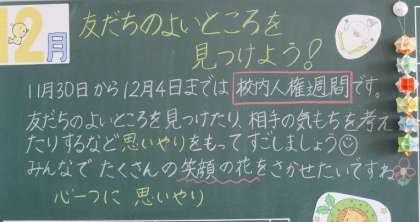 12月
友だちのよいところを
見つけよう!
11月30日から12月4日までは 校内人権週間です。
友だちのよいところを見つけたり、相手の気もちを考え
たりするなど思いやりをもってすごしましょう☺
みんなで たくさんの笑顔の花をさかせたいですね
心一つに 思いやり